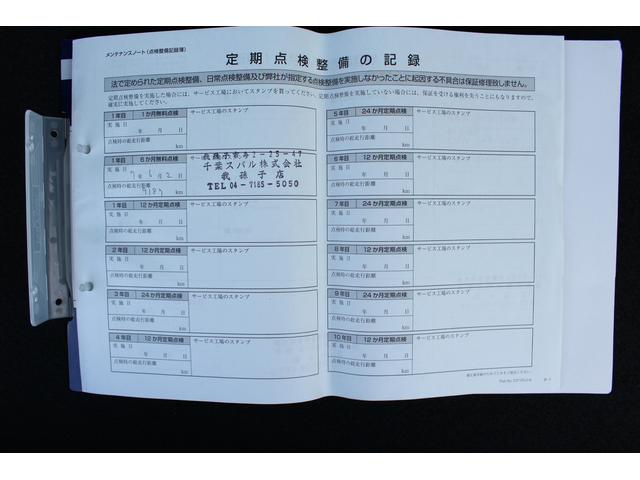 メンテナンスノート(点検整備記録簿)
定期点検整備の記録
法で定められた定期点検整備、日常点検整備及び弊社が指定する点検整備を実施しなかったことに起因する不具合は保証修理致しません。
定期点検整備を実施した場合には、サービス工場においてスタンプを貰ってください。定期点検整備を実施していない場合には、保証を受ける権利を失うことにもなりますので、
確実に実施してください。
1年目 1か月無料点検
サービス工場のスタンプ
実施日
年 月 日
点検時の総走行距離
km
1年目 6か月無料点検
実施日
年 月 日
点検時の総走行距離
km
千葉スバル株式会社
我孫子店
TEL 04-7185-5050
1年目 12か月定期点検
サービス工場のスタンプ
実施日
年 月 日
点検時の総走行距離
km
2年目 12か月定期点検
サービス工場のスタンプ
実施日
年 月 日
点検時の総走行距離
km
3年目 24か月定期点検
サービス工場のスタンプ
実施日
年 月 日
点検時の総走行距離
km
4年目 12か月定期点検
サービス工場のスタンプ
実施日
年 月 日
点検時の総走行距離
km
5年目 24か月定期点検
サービス工場のスタンプ
実施日
年 月 日
点検時の総走行距離
km
6年目 12か月定期点検
サービス工場のスタンプ
実施日
年 月 日
点検時の総走行距離
km
7年目 24か月定期点検
サービス工場のスタンプ
実施日
年 月 日
点検時の総走行距離
km
8年目 12か月定期点検
サービス工場のスタンプ
実施日
年 月 日
点検時の総走行距離
km
9年目 24か月定期点検
サービス工場のスタンプ
実施日
年 月 日
点検時の総走行距離
km
10年目 12か月定期点検
サービス工場のスタンプ
実施日
年 月 日
点検時の総走行距離
km